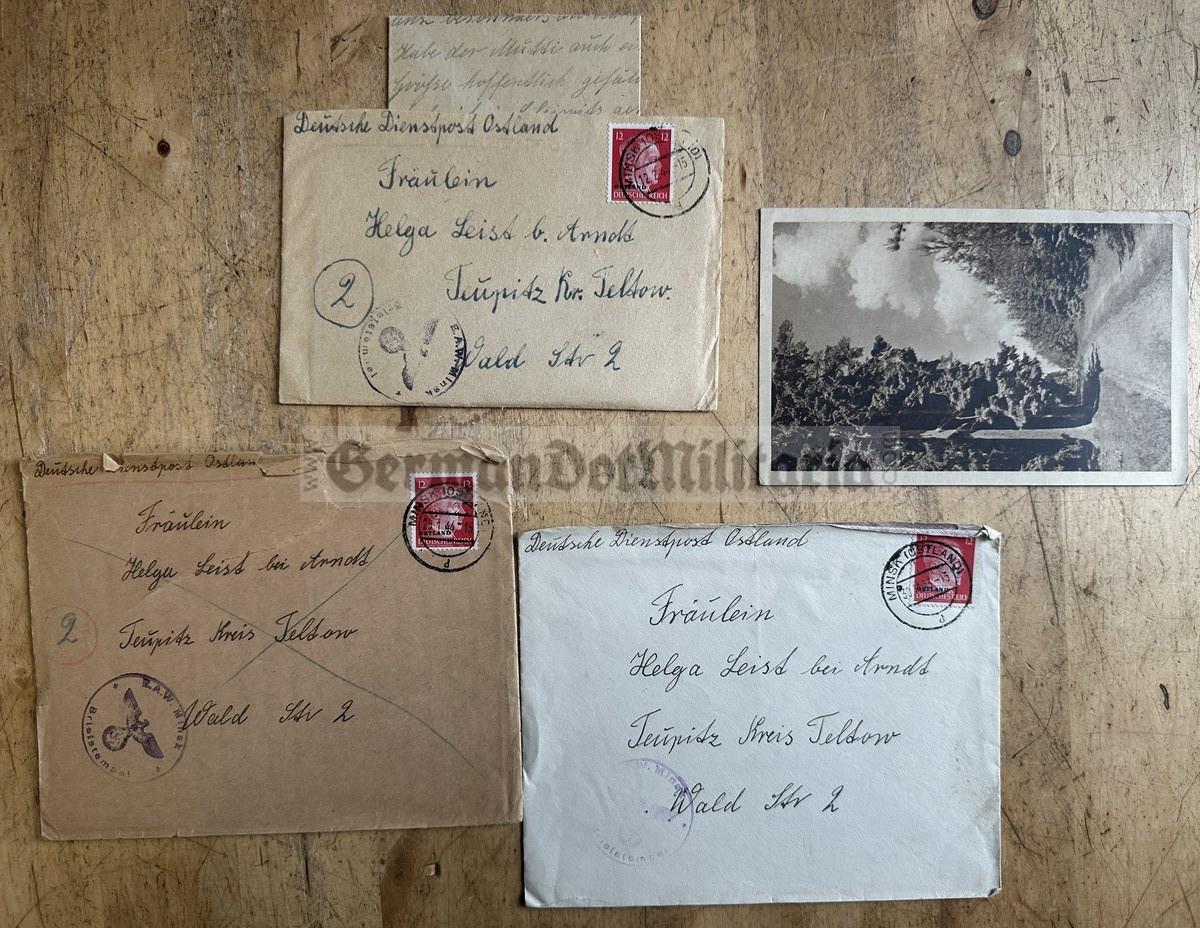 Habe der Mutti auch
Größe hoffentlich
Deutsche Dienstpost Ostland
Fräulein
Helga Leist b. Arndt
2
Teupitz Kr. Teltow.
Wald Str 2
12 12
OSTLAND
DEUTSCHES REICH
MINSK
12.2.
Briefstempel
E.A.W. Minsk
www.GermanDotMilitaria.com
Deutsche Dienstpost Ostlan
Fräulein
Helga Leist bei Arndt
2
Teupitz Kreis Teltow
Wald Str 2
12 12
OSTLAND
DEUTSCHES REICH
MINSK (OSTLAND)
E.A.W. Minsk
Briefstempel
Deutsche Dienstpost Ostland
Fräulein
Helga Leist bei Arndt
Teupitz Kreis Teltow
Wald Str 2
12
OSTLAND
DEUTSCHES REICH
MINSK (OSTLAND)
W. Minsk
Briefstempel